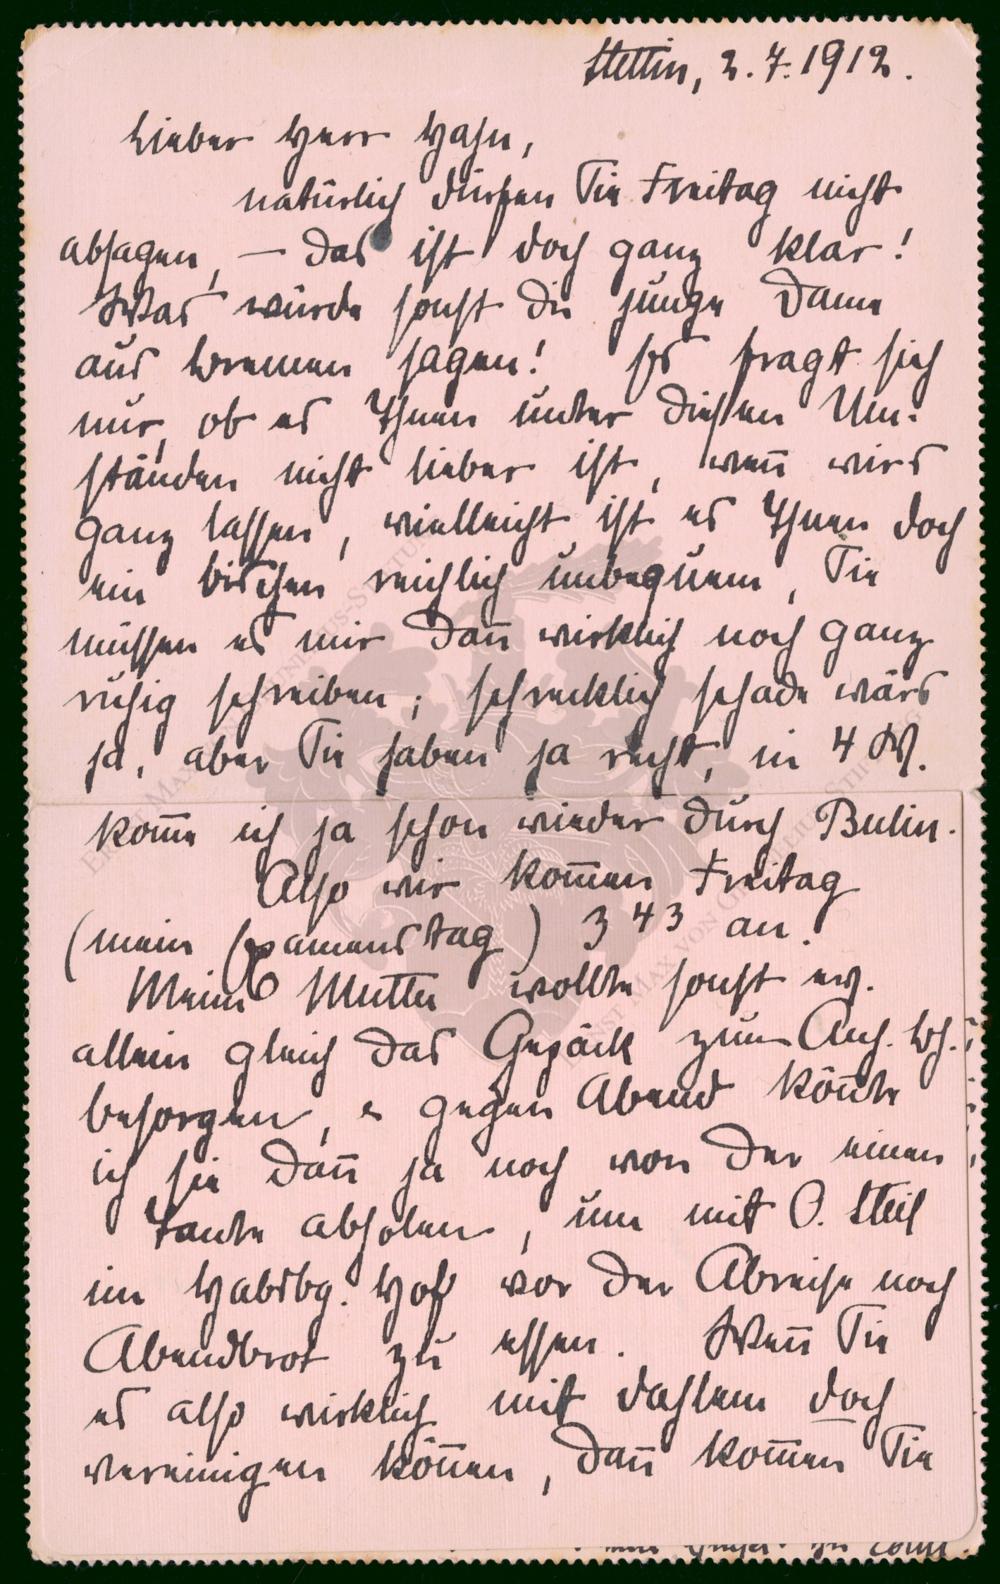 Stettin, 2.7.1912.
Lieber Herr Hahn,
natürlich dürfen Sie Freitag nicht
absagen, — das ist doch ganz klar!
Was würde sonst die junge Dame
aus Bremen sagen! Es fragt sich
nur, ob es Ihnen unter diesen Um-
ständen nicht lieber ist, wen̄ wirs
ganz lassen, vielleicht ist es Ihnen doch
ein bischen reichlich unbequem, Sie
müssen es mir dan̄ wirklich noch ganz
ruhig schreiben; schrecklich schade wärs
ja, aber Sie haben ja recht, in 4 W.
kom̄e ich ja schon wieder durch Berlin.
Also wir kom̄en Freitag
(mein Examenstag) 3 43 an.
Meine Mutter wollte sonst ev.
allein gleich das Gepäck zum Anh. Bh.
besorgen, gegen Abend kön̄te
ich sie dan̄ ja noch von der einen
Tante abholen, um mit O. Steil
im Habsbg. Hof vor der Abreise noch
Abendbrot zu essen. Wen̄ Sie
es also wirklich mit Dahlem doch
vereinigen kön̄en, dan̄ kom̄en Sie